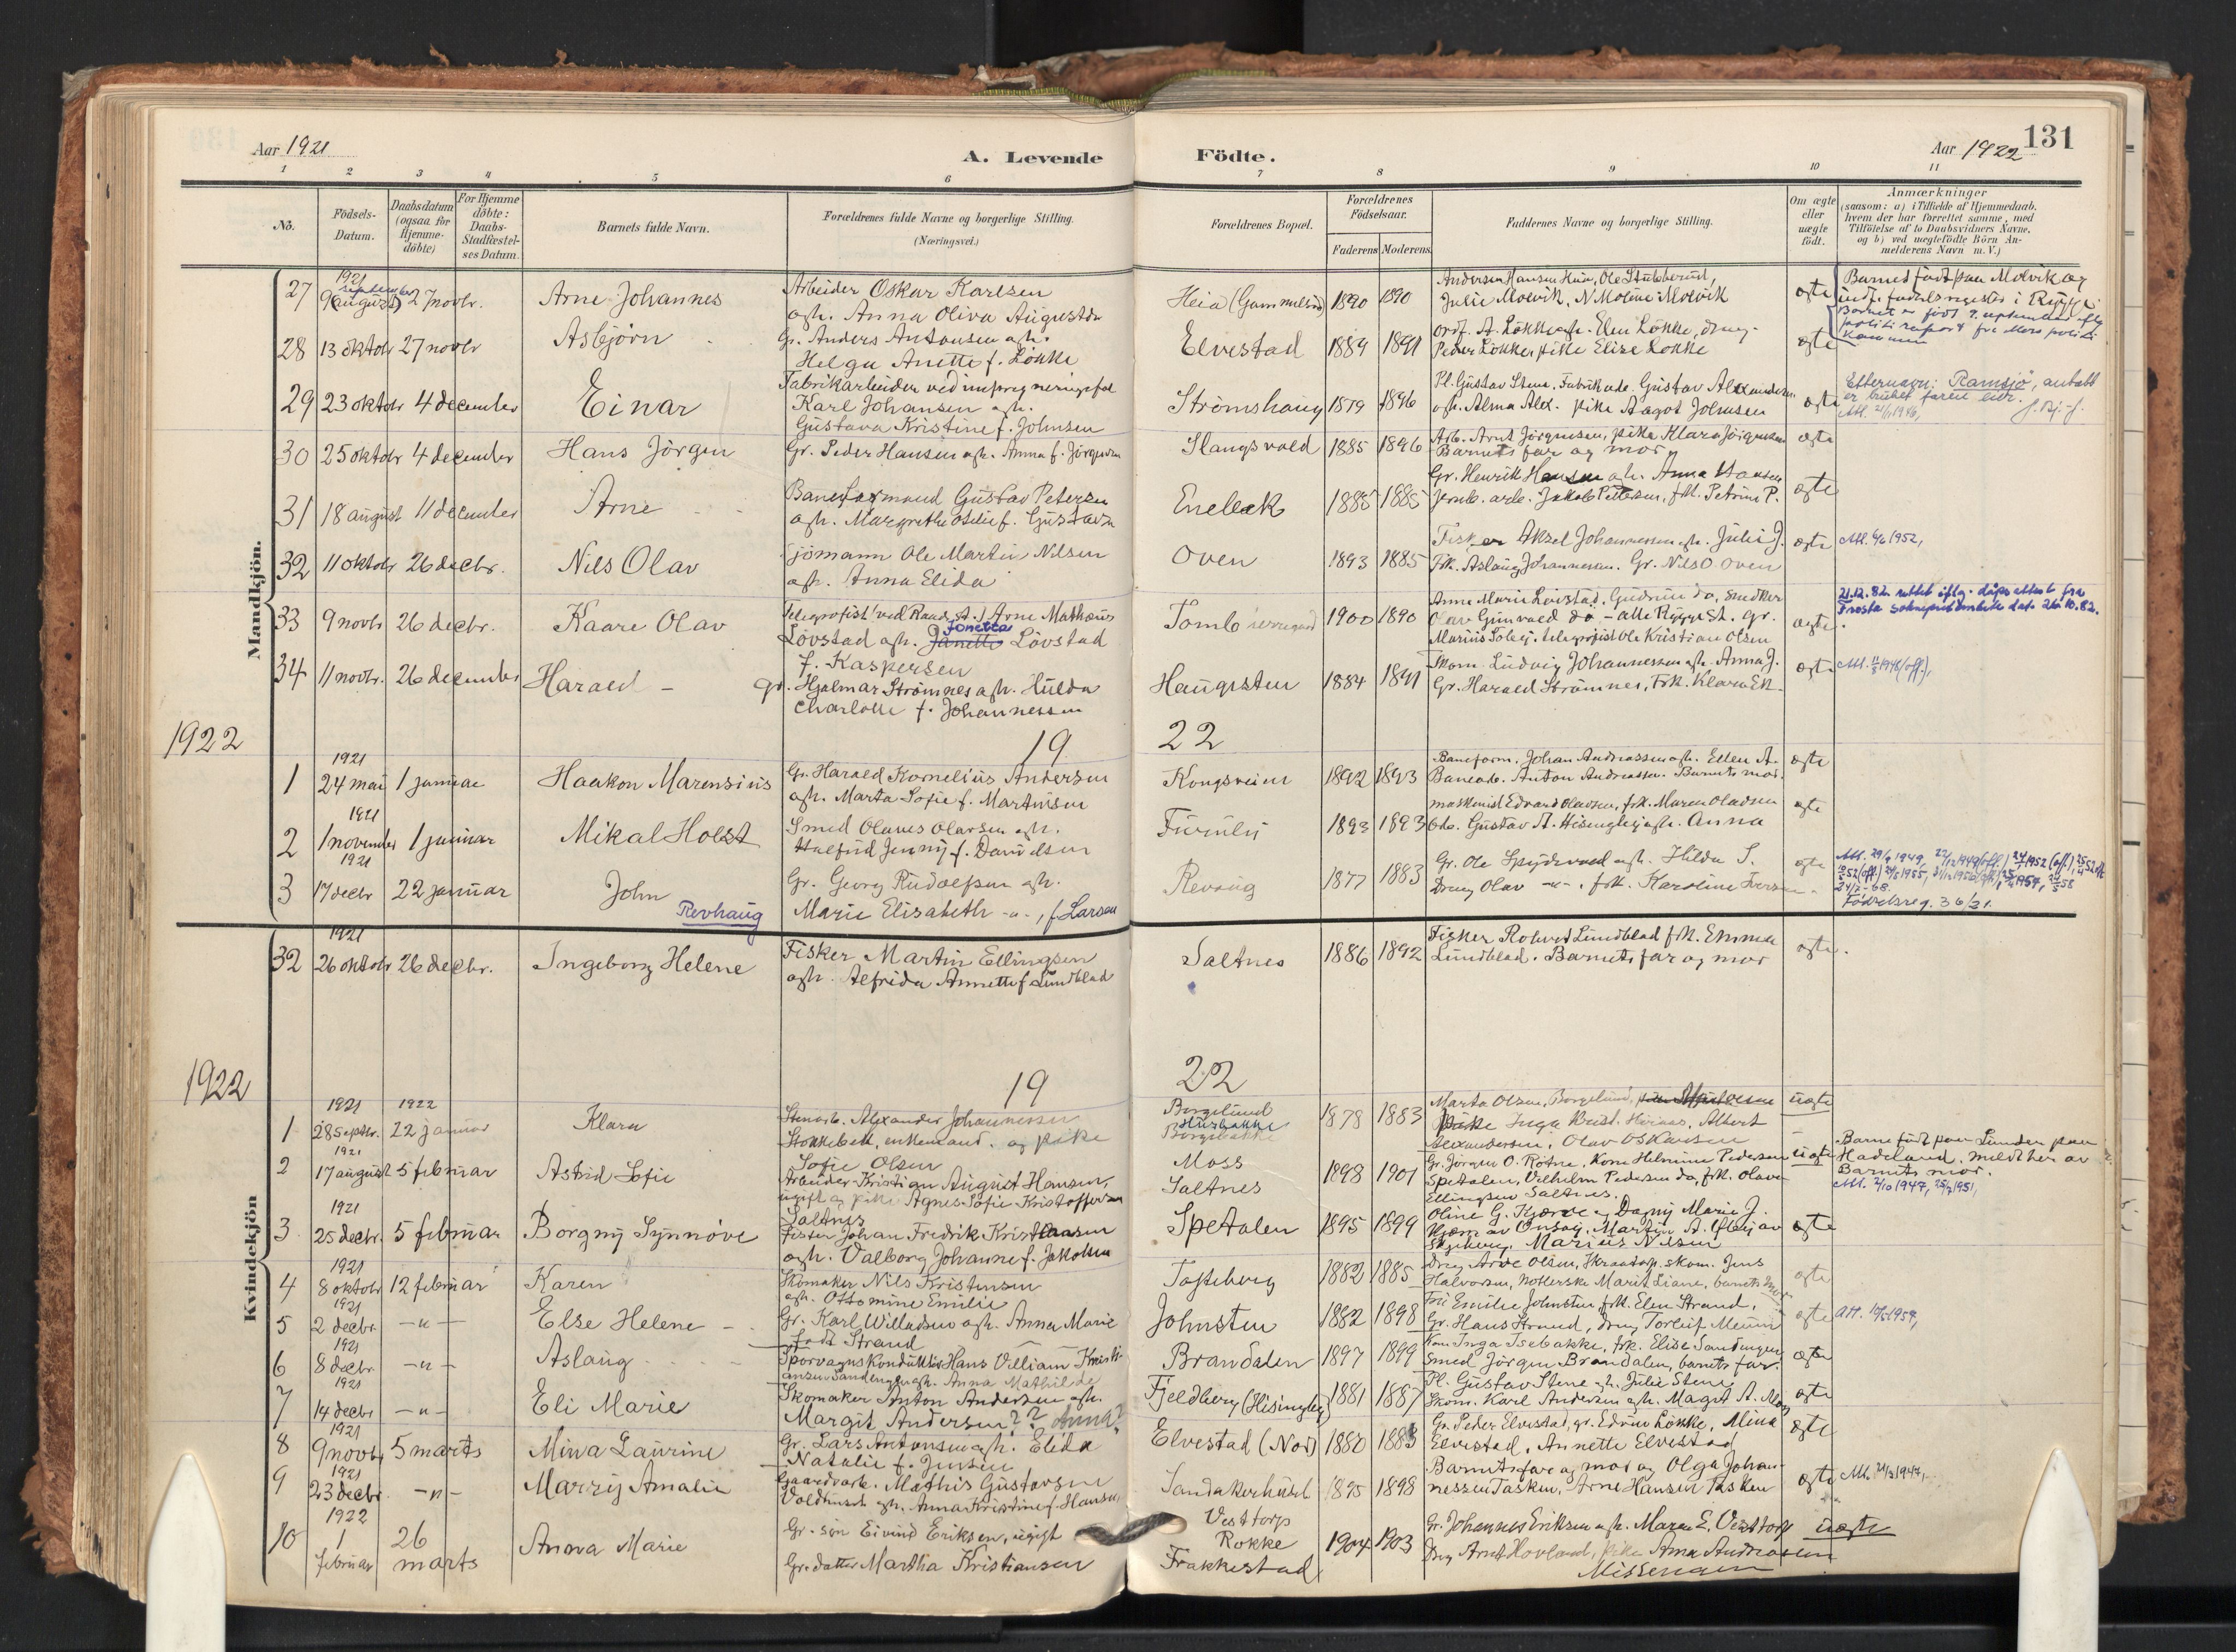 Aar 1921
A. Levende
Födte.
Aar 1922
131
1 2 3 4 5 6 7 8 9 10 11
No.
Födsels-
Datum.
Daabsdatum
(ogsaa for
Hjemme-
döbte)
For Hjemme
döbte:
Daabs-
Stadfæstel-
ses Datum.
Barnets fulde Navn.
Forældrenes fulde Navne og borgerlige Stilling.
(Næringsvei.)
Forældrenes Bopæl.
Forældrenes
Födselsaar.
Faderens
Moderens.
Faddernes Navne og borgerlige Stilling.
Om ægte
eller
uægte
födt.
Anmærkninger
(saasom: a) i Tilfælde af Hjemmedaab.
hvem der har forrettet samme, med
Tilföielse af to Daabsvidners Navne.
og b) ved uægtefödte Börn An-
melderens Navn m. V.)
Mandkjön.
27
1921
september
9 (august) 27 novbr.
Arne Johannes
Arbeider Oskar Karlsen
og h. Anna Oliva Augustdn
Heia 1890 1890
Julie Molvik, N Moline Molvik
ægte
Barnet födt paa Molvik og
indf. födselsregister i Rygge
Barnet er födt 9. september iflg
politi rapport fra Moss politi
kammer
28 13 oktobr 27 novbr
Asbjörn
Gr. Anders Antonsen og h.
Helga Anette f. Lökke
Elvestad 1889 1891
Ordf. A. Lökke og h. Elen Lökke, dreng-
Peder Lökke, pike Elise Lökke
ægte
29 23 oktobr 4 december
Einar
Fabrikarbeider ved
Karl Johansen og h.
Gustava Kristine f. Johnsen
Strömshaug 1879 1896
og h. Alma Alex. pike Aagot Johnsen
ægte
Efternavn: Ramsjö, antatt
30 25 oktobr 4 december
Hans Jörgen
Gr. Peder Hansen og h. Anna f. Jörgensen
Slangsvold 1885 1896
Arb. Arnt Jörgensen, pike Klara Jörgensen
Barnets far og mor
ægte
31 18 august 11 december
Arne
Baneformand Gustav Petersen
og h. Margrethe Otilie f. Gustavsn
Enebæk 1885 1885
Gr. Henrik Hansen og h. Anna Hansen
Jernb. arb. Jakob Pettersen, frk. Petrine P.
ægte
32 11 oktobr 26 decbr.
Nils Olav
Sjömann Ole Martin Nilsen
og h. Anna Elida
Oven 1893 1885
Fisker Aksel Johannessen og h. Julie J.
Frk. Aslaug Johannessen. Gr. Nils O. Oven
ægte
Att. 4/6 1952,
33 9 novbr 26 decbr.
Kaare Olav
Telegrafist ved Raade St. Arne Mathæus
Jonetta
Lövstad og h. Janette Lövstad
f. Kaspersen
Tomb 1900 1890
Anne Marie Lövstad, Gudrun do, snedker
Olav Gunvald do - alle Rygge St. Gr.
Marius Solej. telegrafist Ole Kristian Olsen
ægte
21.12.82 rettet iflg. dåpsattest fra
Frosta sokneprestembete dat. 26.10.82.
34 11 novbr. 26 december
Harald
Gr. Hjalmar Strömnes og h. Hulda
Charlotte f. Johannessen
Haugsten 1884 1891
Skom. Ludvig Johannessen og h. Anna J.
Gr. Harald Strömnes, Frk. Klara Ek.
ægte
1922
19
22
1
1921
24 mai 1 januar
Haakon Marensius
Gr. Harald Kornelius Andersen
og h. Marta Sofie f. Martinsen
Kongsrein 1892 1893
Baneform. Johan Andreassen og h. Ellen A.
Banearb. Anton Andreassen. Barnets mor.
ægte
2
1921
1 november 1 januar
Mikal Holst
Smed Olaves Olavsen og h.
Halfrid Jenny f. Davidsen
Furuly 1893 1893
maskinist Edvard Olavsen, frk. Maren Olavsen
Gustav A. Hisingley og h. Anna
ægte
3
1921
17 decbr 22 januar
John
Revhaug
Gr. Georg Rudolfsen og h.
Marie Elisabeth -"-, f. Larsen
Revaug 1877 1883
Gr. Ole Spydevold og h. Hilda S.
Dreng Olav -"-. frk. Karoline Iversen
ægte
24/2-68.
Födselsreg. 36/21.
1921
32 26 oktobr 26 decbr.
Ingeborg Helene
Fisker Martin Ellingsen
og h. Alfrida Annette f. Lundblad
Saltnes 1886 1892
Fisker Robert Lundblad frk. Emma
Lundblad. Barnets far og mor
ægte.
1922
19
22
Kvindekjön
1921 1922
1 28 septbr. 22 januar
Klara
Stenarb. Alexander Johannessen
Stokkebæk, enkemand. og pike
Sofie Olsen
Borgelund
Husbakke
1878 1883
Marta Olsen, Borgelund,
Pike Inga Krist. Albert
Alexandersen, Olav Oskarsen
uægte
1921
2 17 august 5 februar
Astrid Sofie
Arbeider Kristian August Hansen,
ugift og pike Agnes Sofie Kristoffersen
Saltnes
Moss
Saltnes
1898 1901
Gr. Jörgen O. Rötne, Kone Helmine Pedersen
Spetalen, Vilhelm Pedersen do, frk. Olava
Ellingsen Saltnes.
uægte
Barnet födt paa Lunden paa
Hadeland, meldt her av
Barnets mor.
Att. 2/10 1947, 25/9 1951,
1921
3 25 decbr. 5 februar
Borgny Synnöve
Fisker Johan Fredrik Kristiansen
og h. Valborg Johanne f. Jakobsen
Spetalen 1895 1899
Oline G. Kjærre og Dagny Marie J.
Marius Nilsen
ægte
1921
4 8 oktobr 12 februar
Karen
Skomaker Nils Kristensen
og h. Ottomine Emilie
Tasteberg 1882 1885
Dreng Arve Olsen, skom. Jens
Halvorsen, Marit Liane, barnets mor
ægte
1921
5 2 decbr. -"-
Else Helene
Gr. Karl Willadsen og h. Anna Marie
födt Strand
Johnsten 1882 1898
Fru Emilie Johnsten frk. Elen Strand,
Gr. Hans Strand, dreng Torleif Meum
ægte
1921
6 8 decbr. -"-
Aslaug
Sporvagnskonduktör Hans Villiam Kristi-
ansen Sandengen og h. Anna Mathilde
Brandalen 1897 1899
Kone Inga Isebakke, frk. Elise Sandengen
smed Jörgen Brandalen, barnets far.
ægte
1921
7 14 decbr -"-
Eli Marie
Skomaker Anton Andersen og h.
Margit Andersen?? Anna?
Fjeldberg (Hisingley) 1881 1887
Pl. Gustav Stene og h. Julie Stene
Skom. Karl Andersen og h. Magrt A. Moss
ægte
1921
8 9 novbr 5 marts
Mina Laurine
Gr. Lars Antonsen og h. Elida
Natalie f. Jensen
Elvestad (Nor) 1880 1883
Gr. Peder Elvestad, gr. Edvin Lökke, Mina
Elvestad, Annette Elvestad
ægte
1921
9 23 decbr -"-
Marry Amalie
Gaardsarb. Mathis Gustavsen
og h. Anna Kristine f. Hansen
Sandakerhusel 1895 1898
Barnets fare og mor og Olga Johan-
nessen Tasken, Arne Hansen Tasken
ægte
1922
10 1 februar 26 marts
Anna Marie
Gr. sön Eivind Eriksen, ugift
Gr. datter Martha Kristiansen
Vesttorp
Rokke
Frakkestad
1904 1903
Gr. Johannes Eriksen og h. Maren E. Vesttorp
Dreng Arnt Hovland, pike Anna Andreassen
Missengen
uægte